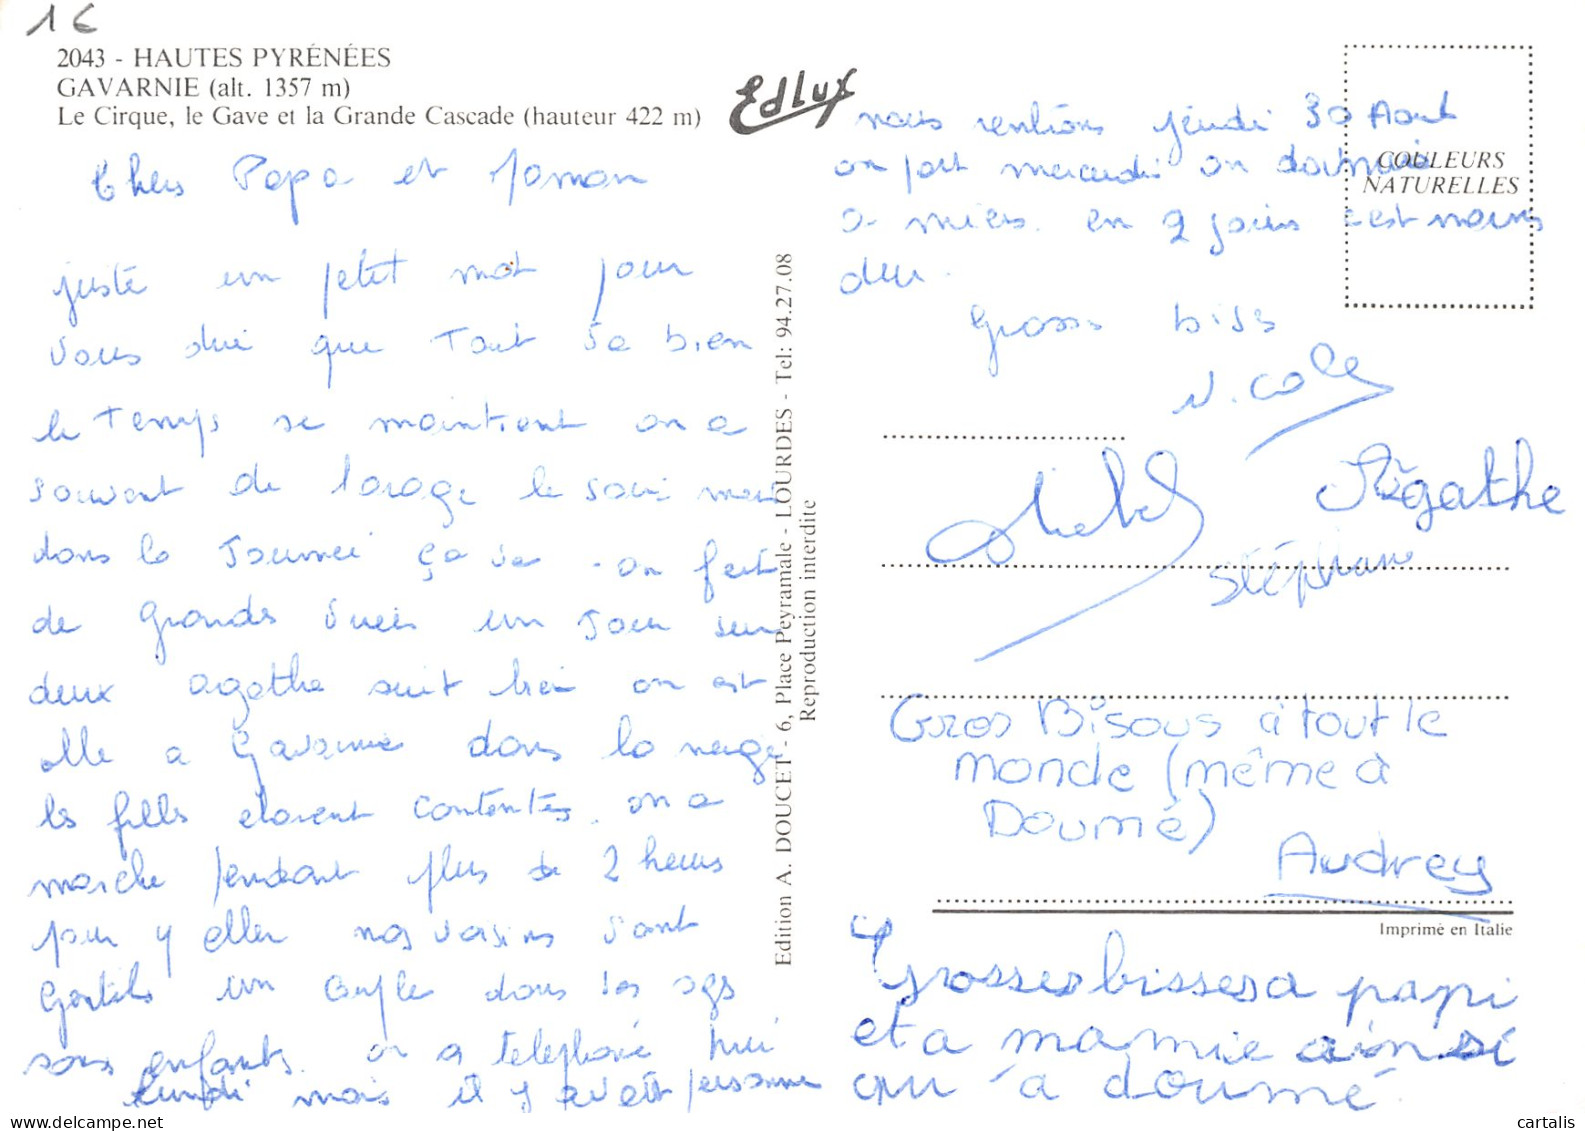 1€
2043 - HAUTES PYRÉNÉES
GAVARNIE (alt. 1357 m)
Le Cirque, le Gave et la Grande Cascade (hauteur 422 m)
Edlux
COULEURS
NATURELLES
Chers Papa et Maman
juste un petit mot pour
vous dire que Tout va bien
le Temps se maintient on a
souvent de l'orage le soir mais
dans la Journée ça va . on fait
de grandes virées un Jour sur
deux agathe suit bien on est
allé a Gavarnie dans la neige
les filles etaient contentes. on a
marche pendant plus de 2 heures
pour y aller nos voisins sont
Gentils un couple dans les ages
sans enfants. on a telephoné
lundi mais il y avait personne
Edition A. DOUCET - 6, Place Peyramale - LOURDES - Tel: 94.27.08
Reproduction interdite
nous rentrons jeudi 30 Aout
on part mercredi on dormira
a miers. en 2 jours c'est moins
dur.
Grosses bises
Nicole
Michel
Agathe
Stéphane
Gros Bisous à tout le
monde (même à
Doumé)
Audrey
Imprimé en Italie
Grosses bisses a papi
et a mamie ainsi
qu'a doumé